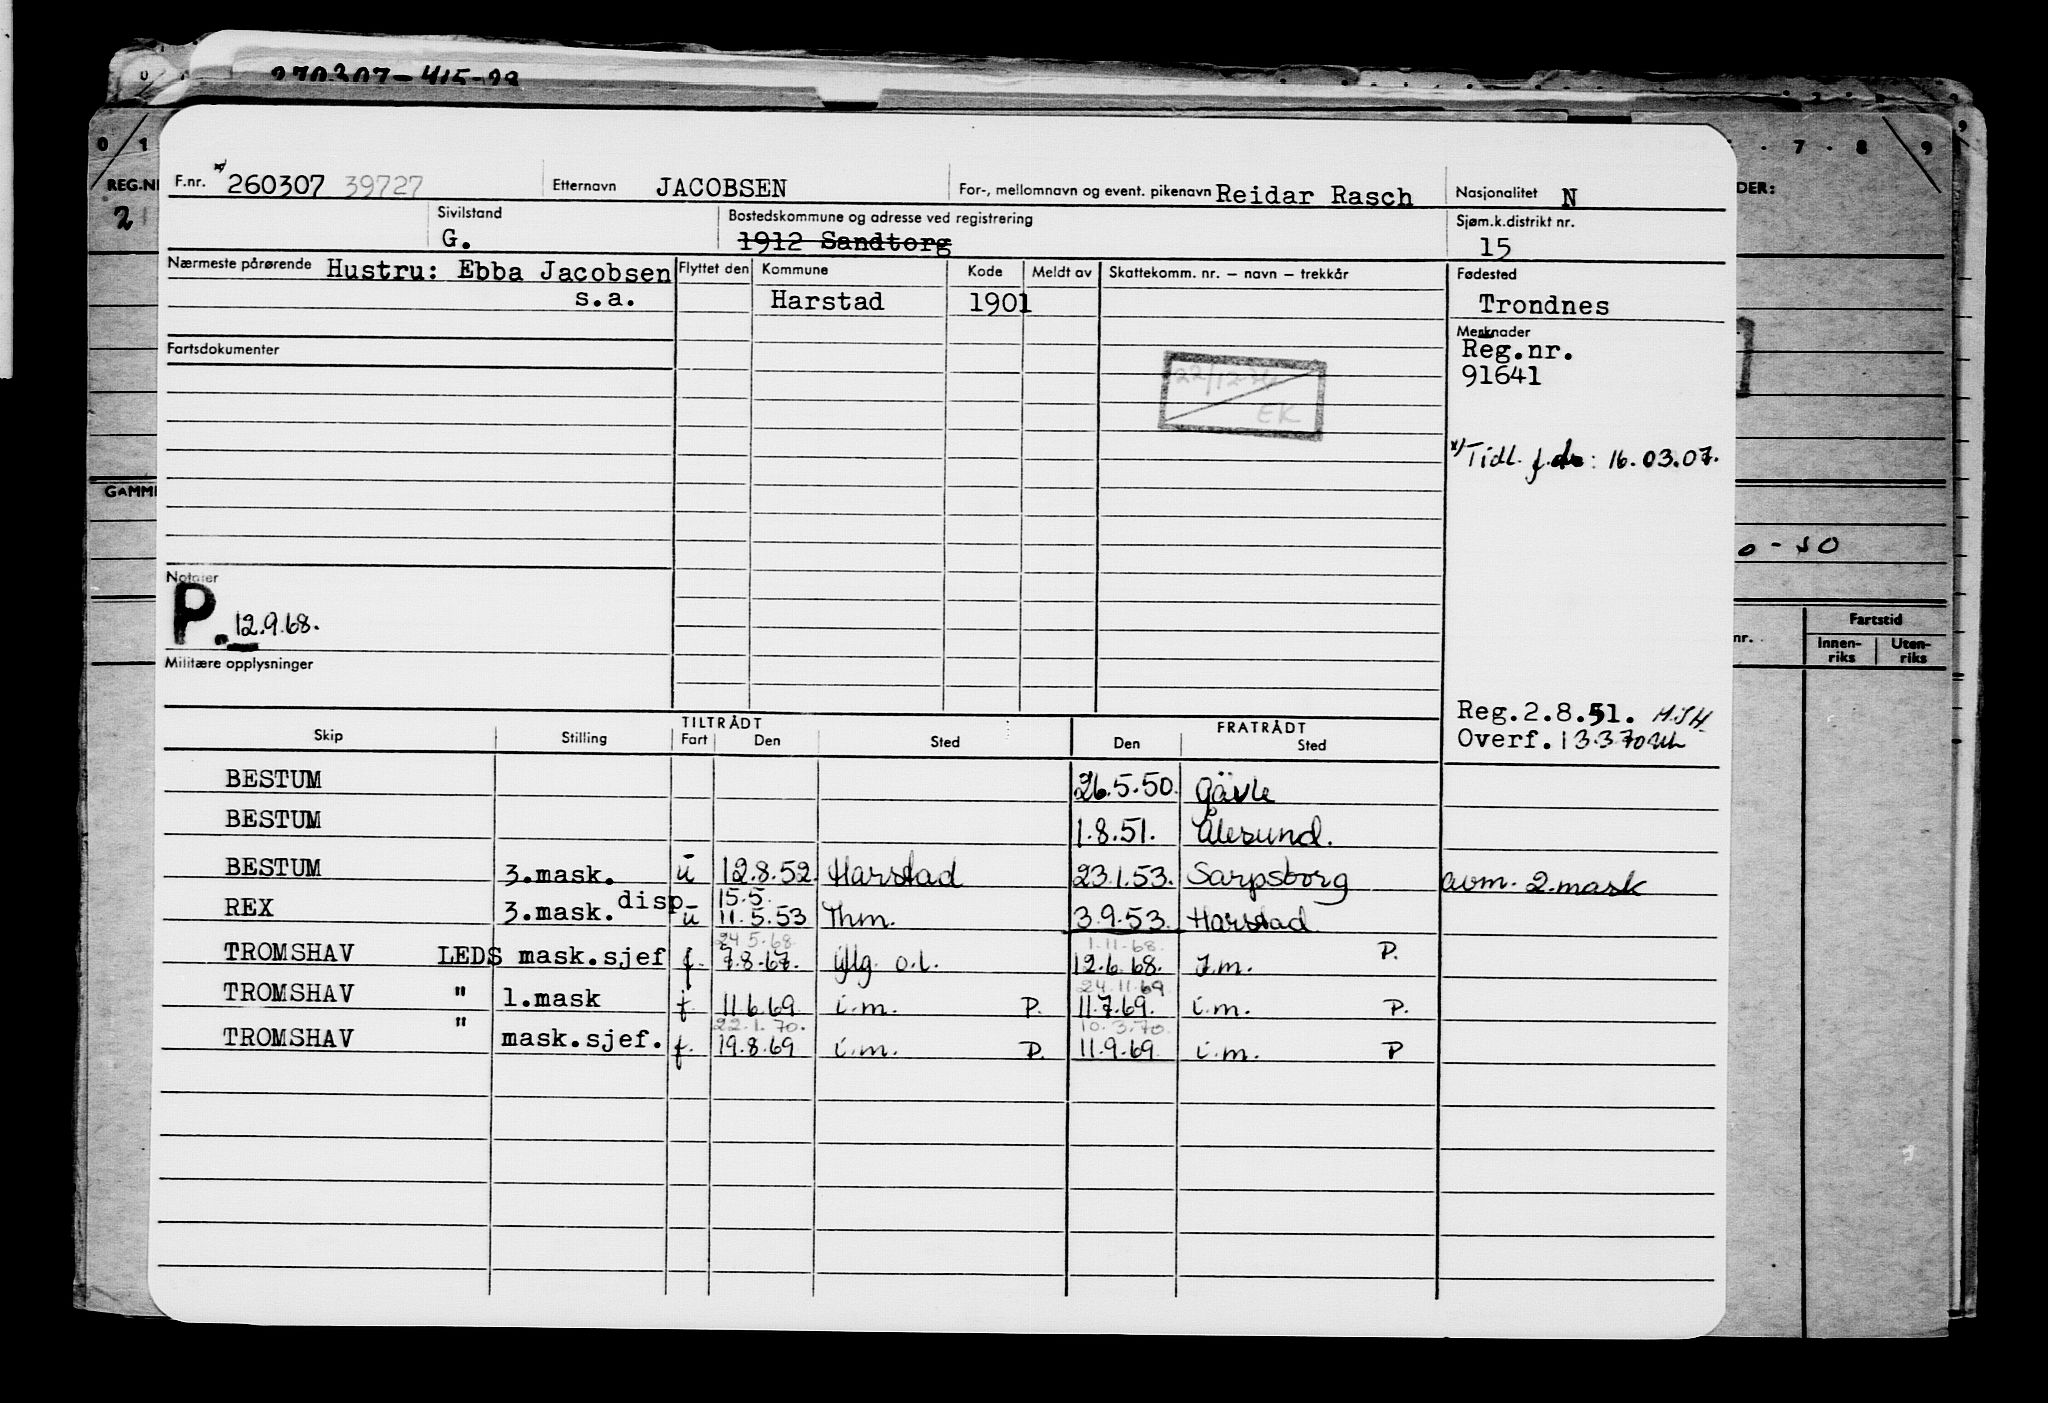 270307-415-29
0 1 7 . 8 9
REG.NR
DER:
2
GAMM
0 - 50
nr.
Fartstid
Innen-riks Uten-riks
F.nr. x) 260307 39727 Etternavn JACOBSEN For-, mellomnavn og event. pikenavn Reidar Rasch Nasjonalitet N
Sivilstand G. Bostedskommune og adresse ved registrering 1912 Sandtorg Sjøm.k.distrikt nr. 15
Nærmeste pårørende Hustru: Ebba Jacobsen Flyttet den Kommune Kode Meldt av Skattekomm. nr. – navn – trekkår Fødested
s.a. Harstad 1901 Trondnes
Merknader
Fartsdokumenter Reg.nr.
22/12-76 91641
EK
x) Tidl. f.da: 16.03.07.
Notater
P. 12.9.68.
Militære opplysninger
Reg.2.8.51. HSH
Overf. 13.3.70
TILTRÅDT FRATRÅDT
Skip Stilling Fart Den Sted Den Sted
BESTUM 26.5.50. Gävle
BESTUM 1.8.51. Ålesund.
BESTUM 3.mask. u 12.8.52. Harstad 23.1.53. Sarpsborg avm. 2.mask
disp 15.5.
REX 3.mask. u 11.5.53 Thm. 3.9.53. Harstad
24.5.68. 1.11.68.
TROMSHAV LEDS mask.sjef f. 7.8.67. o.l. 12.6.68. I.m. P.
24.11.69
TROMSHAV " 1.mask f. 11.6.69 i.m. P. 11.7.69. i.m. P.
22.1.70. 10.3.70.
TROMSHAV " mask.sjef. f. 19.8.69 i.m. P. 11.9.69. i.m. P